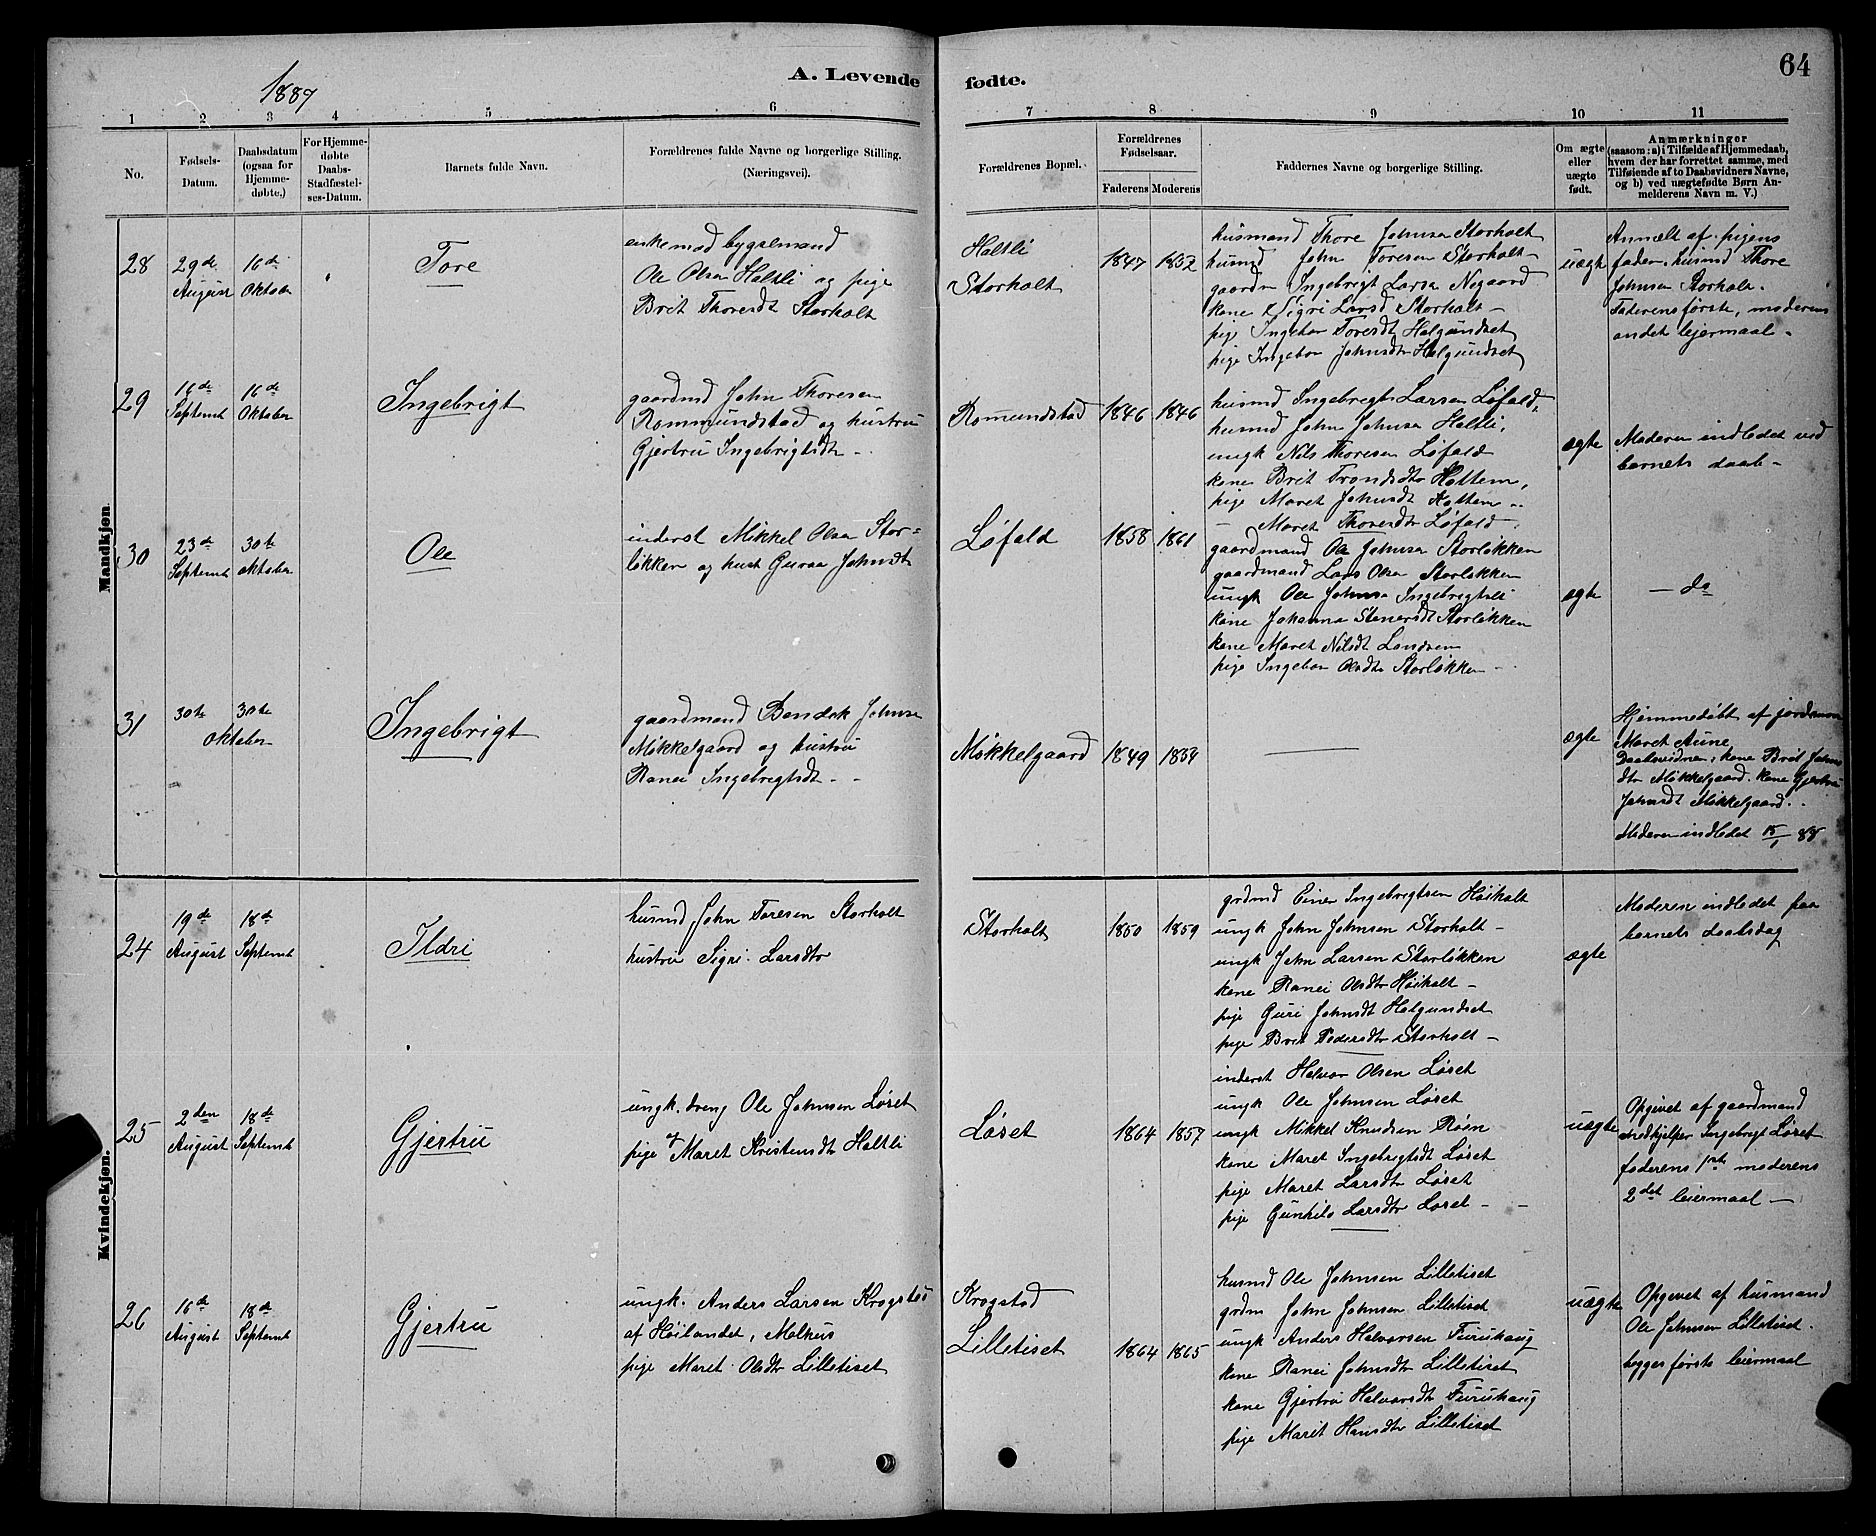 1887
A. Levende fødte.
64
1 2 3 4 5 6 7 8 9 10 11
No.
Fødsels-
Datum.
Daabsdatum
(ogsaa for
Hjemme-
døbte.)
For Hjemme-
døbte
Daabs-
Stadfæstel-
ses-Datum.
Barnets fulde Navn.
Forældrenes fulde Navne og borgerlige Stilling.
(Næringsvei).
Forældrenes Bopæl.
Forældrenes
Fødselsaar.
Faderens Moderens
Faddernes Navne og borgerlige Stilling.
Om ægte
eller
uægte
født.
Anmærkninger
(saasom: a) i Tilfælde af Hjemmedaab,
hvem der har forrettet samme, med
Tilføiende af to Daabsvidners Navne,
og b) ved uægtefødte Børn An-
melderens Navn m. V.)
Mandkjøn.
28
29de
August
16de
Oktober
Tore
enkemad bygselmand
Ole Olsen Haltli og pige
Brit Thoresdt Storholt
Haltli
Storholt
1847 1852
husmand Thore Johnsen Storholt
husmd John Toresen Storholt
gaardm Ingebrigt Larsen Nygaard
kone Sigri Larsd Storholt
pige Ingebor Toresdt Halgundset
pige Ingebor Johnsdt Halgundset
uægt
Anmelt af pigens
fader, husmd Thore
Johnsen Storholt.
Faderens første, moderens
andet lejermaal.
29
16de
Septembr
16de
Oktober
Ingebrigt
gaardmd John Thoresen
Rommundstad og hustru
Gjertru Ingebrigtsdtr
Romundstad
1846 1846
husmd Ingebrigt Larsen Løfald,
husmd John Johnsen Haltli,
ungk Nils Thoresen Løfald
kone Brit Trondsdtr Hattem,
pige Maret Johnsdt Hattem
— Maret Thoresdtr Løfald.
ægte
Moderen indledet ved
barnets daab
30
23de
Septembr
30te
oktober
Ole
inderst Mikkel Olsen Stor=
løkken og hust Guroa Johnsdt
Løfald
1858 1861
gaardmand Ole Johnsen Storløkken
gaardmand Lars Olsen Storløkken
ungk Ole Johnsen Ingebrigtsli
kone Johanna Stenersdt Storløkken
kone Maret Nilsdt Landsem
pige Ingebor Olsdtr Storløkken
ægte
— do
31
30te 30te
Oktober
Ingebrigt
gaardmand Bendek Johnsen
Mikkelgaard og hustru
Ranei Ingebrigtsdt
Mikkelgaard
1849 1854
ægte
Hjemmedøbt af jordmor
Maret Aune
Daabsvidner: kone Brit Johns
dtr Mikkelgaard. kone Gjertru
Johnsdt Mikkelgaard.
Moderen indledet 15/1 88
Kvindekjøn.
24
19de
August
18de
Septembr
Ildri
husmd John Toresen Storholt
hustru Sigri Larsdtr
Storholt
1850 1859
grdmd Einer Ingebrigtsen Høiholt
ungk John Johnsen Storholt
ungk John Larsen Storløkken
kone Ranei Olsdtr Høiholt
pige Guri Johnsdt Halgundset
pige Brit Pedersdtr Storholt
ægte
Moderen indledet paa
barnets daabsdag
25
2den
August
18de
Septembr
Gjertru
ungk. dreng Ole Johnsen Løset
pige Maret Kristensdtr Haltli
Løset
1864 1857
inderst Halvor Olsen Løset
ungk Ole Johnsen Løset
ungk Mikkel Knudsen Røen
kone Maret Ingebrigtsdt Løset
pige Maret Larsdtr Løset
pige Gunhild Larsdtr Løset
uægte
Opgivet af gaardmand
Medhjelper Ingebrigt Løset
faderens 1ste moderens
2det leiermaal
26
16de
August
18de
Septembr
Gjertru
ungk. Anders Larsen Krogstad
af Høilandet, Melhus
pige Maret Olsdtr Lilletiset
Krogstad
Lilletiset
1864 1865
husmd Ole Johnsen Lilletiset
grdm John Johnsen Lilletiset
ungk Anders Halvorsen Furuhaug
kone Ranei Johnsdtr Lilletiset
kone Gjertru Halvorsdt Furuhaug
pige Marit Hansdtr Lilletiset
uægte
Opgivet af husmand
Ole Johnsen Lilletiset.
begges første leiermaal